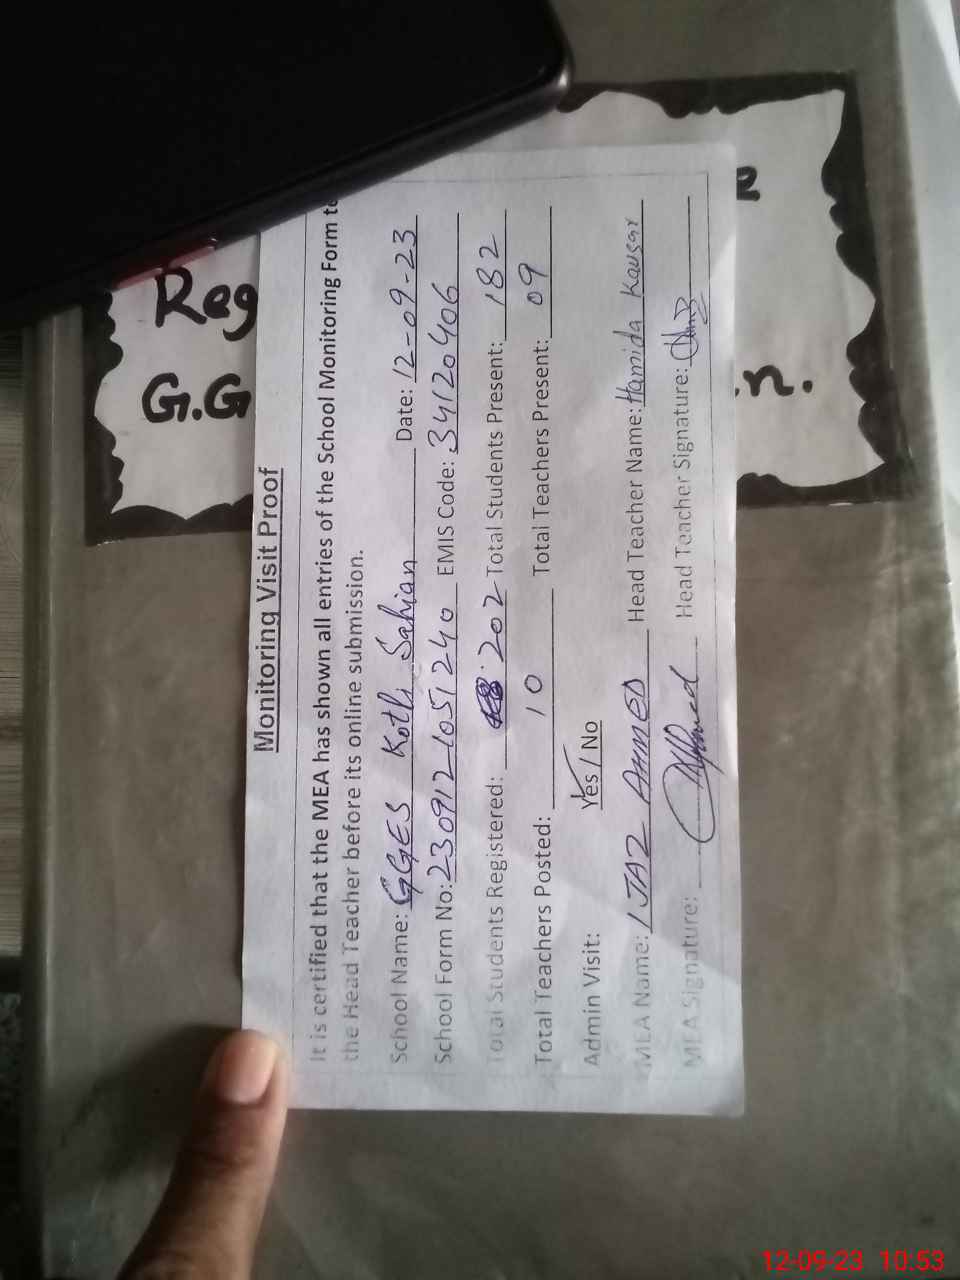 Monitoring Visit Proof
It is certified that the MEA has shown all entries of the School Monitoring Form to
the Head Teacher before its online submission.
School Name: GGES Kotli Sahian Date: 12-09-23
School Form No: 230912-1051240 EMIS Code: 34120406
Total Students Registered: 202 Total Students Present: 182
Total Teachers Posted: 10 Total Teachers Present: 09
Admin Visit: Yes / No
MEA Name: IJAZ AHMED Head Teacher Name: Hamida Kausar
MEA Signature: Ahmed Head Teacher Signature:
Reg
G.G n.
12-09-23 10:53